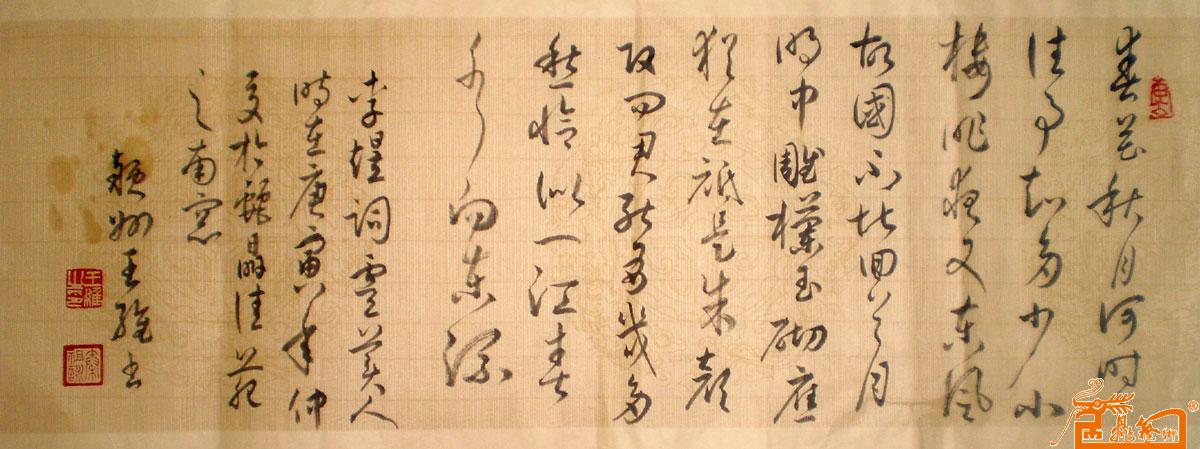 春花秋月何时
往事知多少小
楼昨夜又东风
故國不堪回首月
明中雕欄玉砌應
猶在祇是朱顏
改问君能有幾多
愁恰似一江春
水向东流
李煜詞虞美人
時在庚寅年仲
夏於晶佳苑
之南窗
州王书